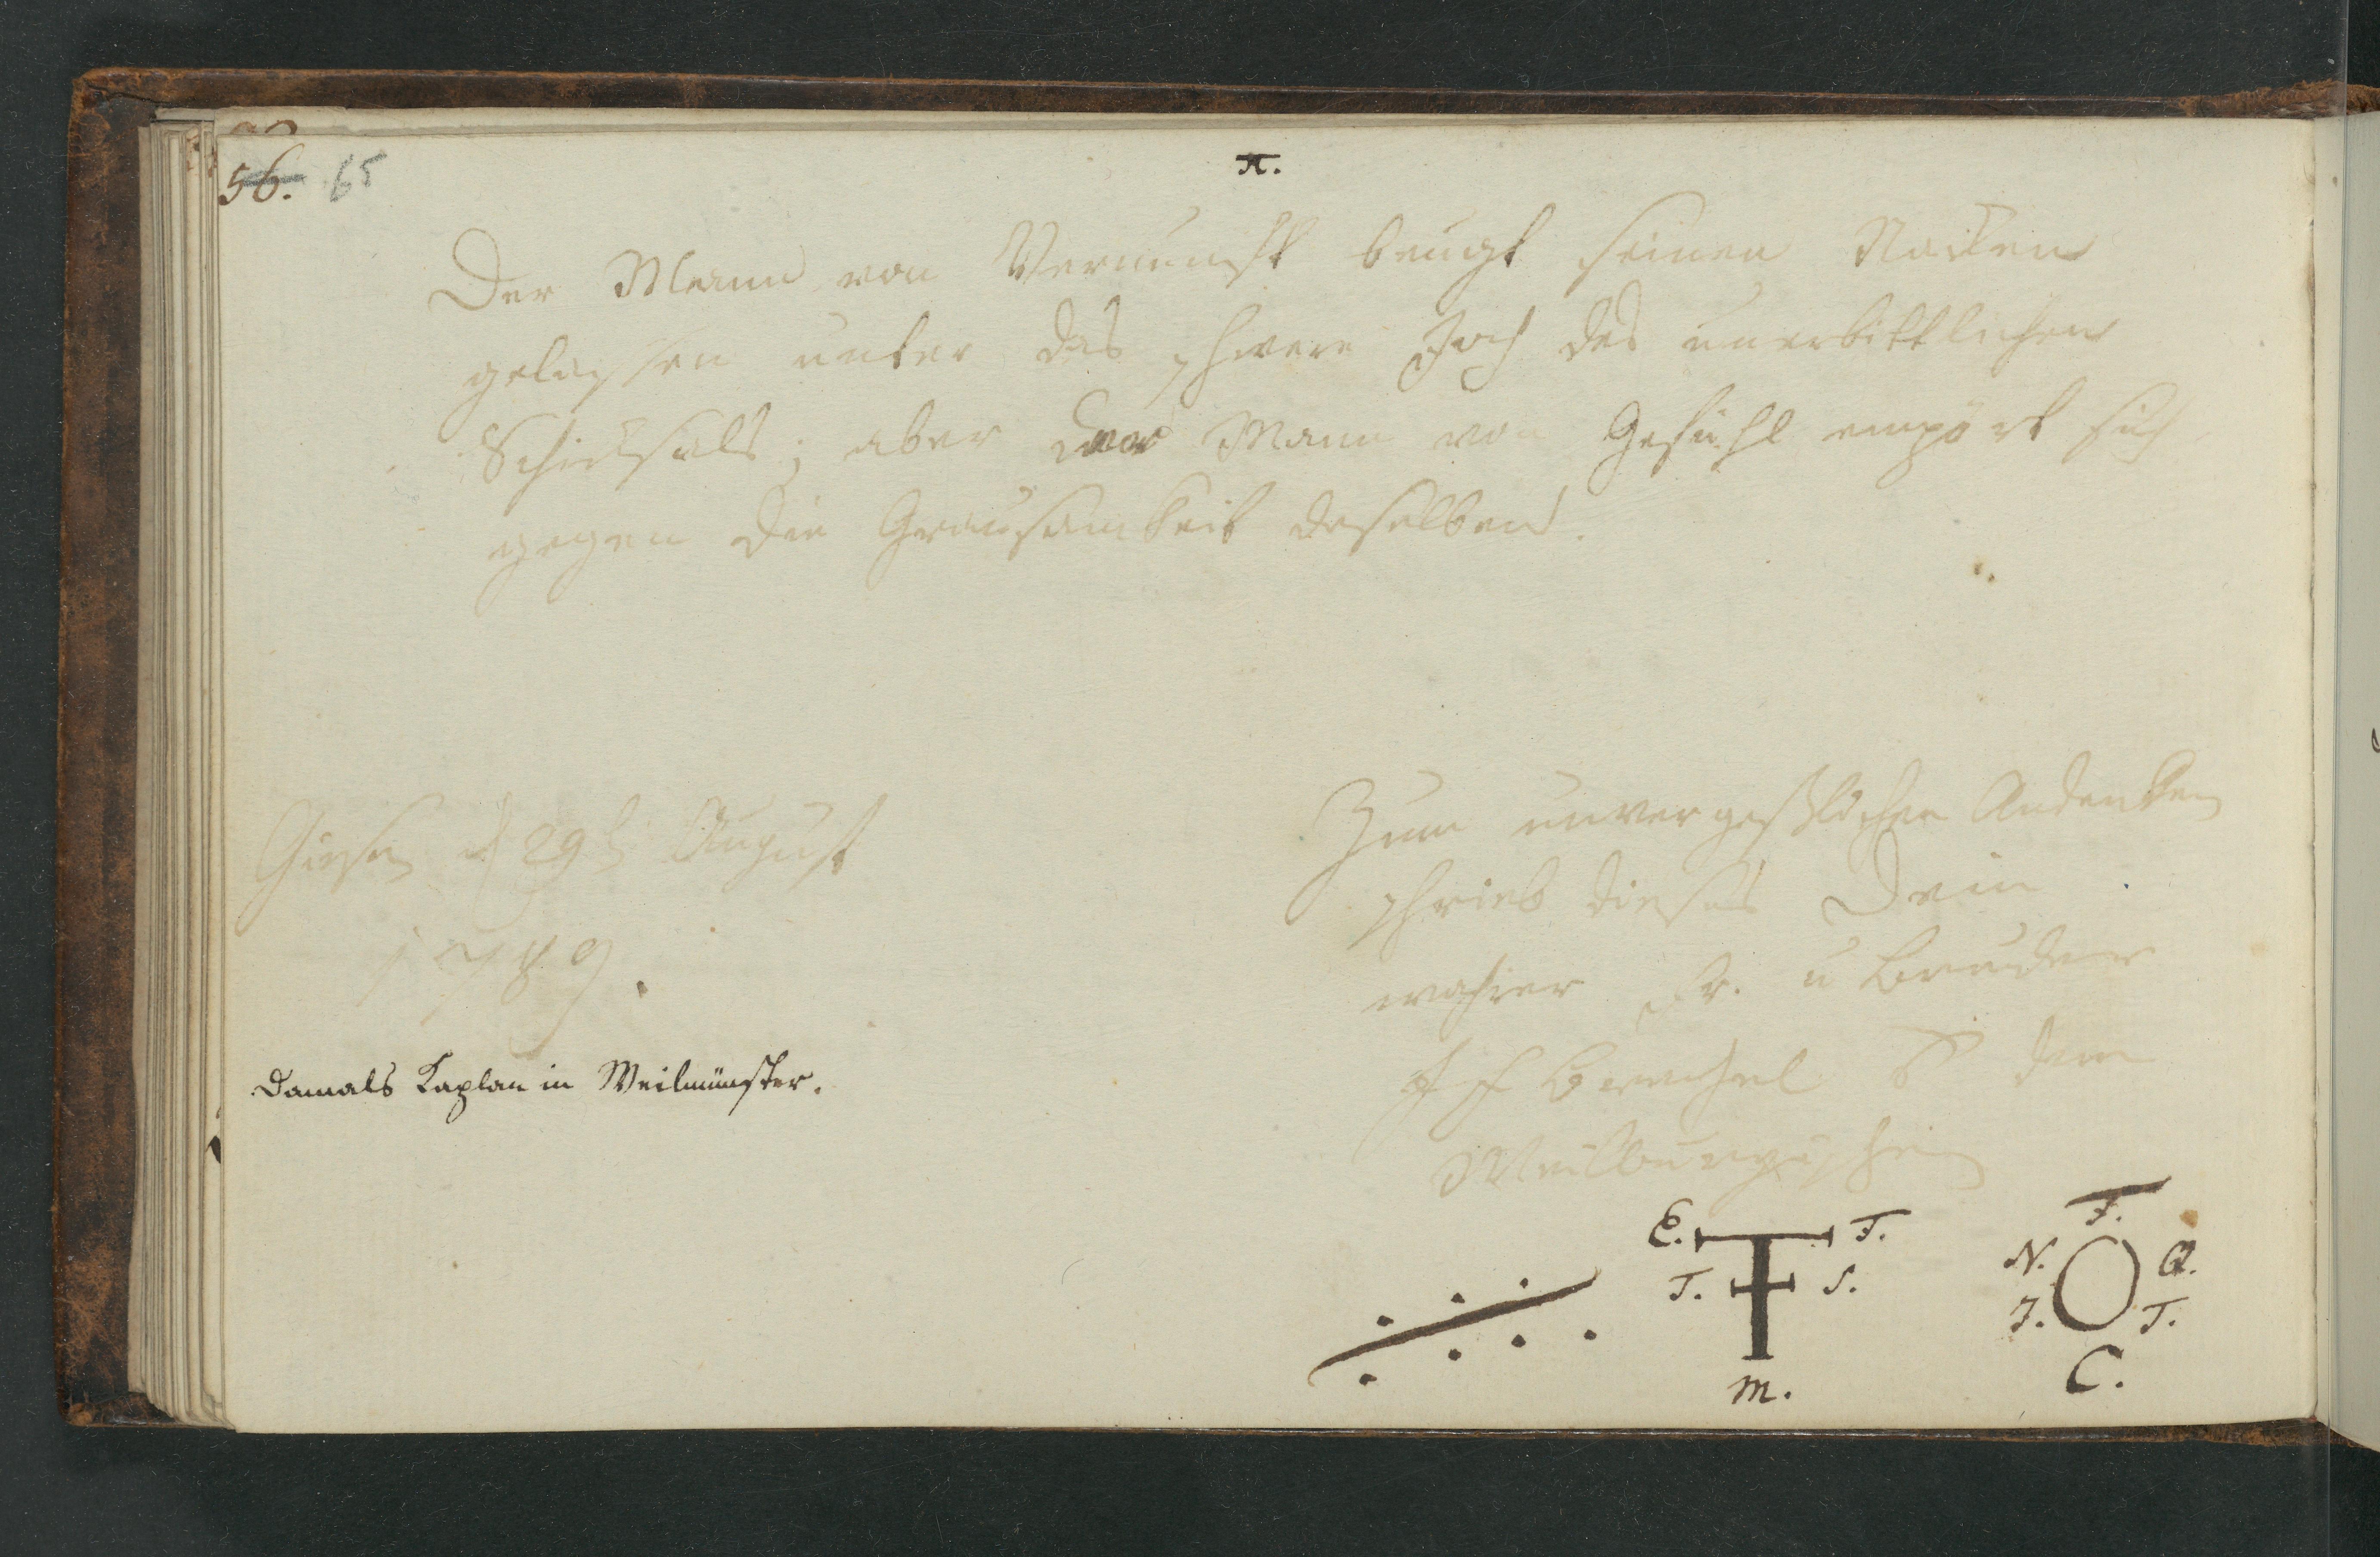 56. 65
π.
Der Mann von Vernunft beugt seinen Nacken
gelassen unter das schwere Joch des unerbittlichen
Schicksals; aber der Mann von Gefühl empört sich
gegen die Grausamkeit deselben.
Giesen d 29t August
1789.
Damals Kaplan in Weilmünster.
Zum unvergeßlichen Andenken
schrieb dieses Dein
wahrer Fr. u Bruder
aus dem
Weilburgischen
E. T.
T. S.
M.
F.
N. A.
J. T.
C.